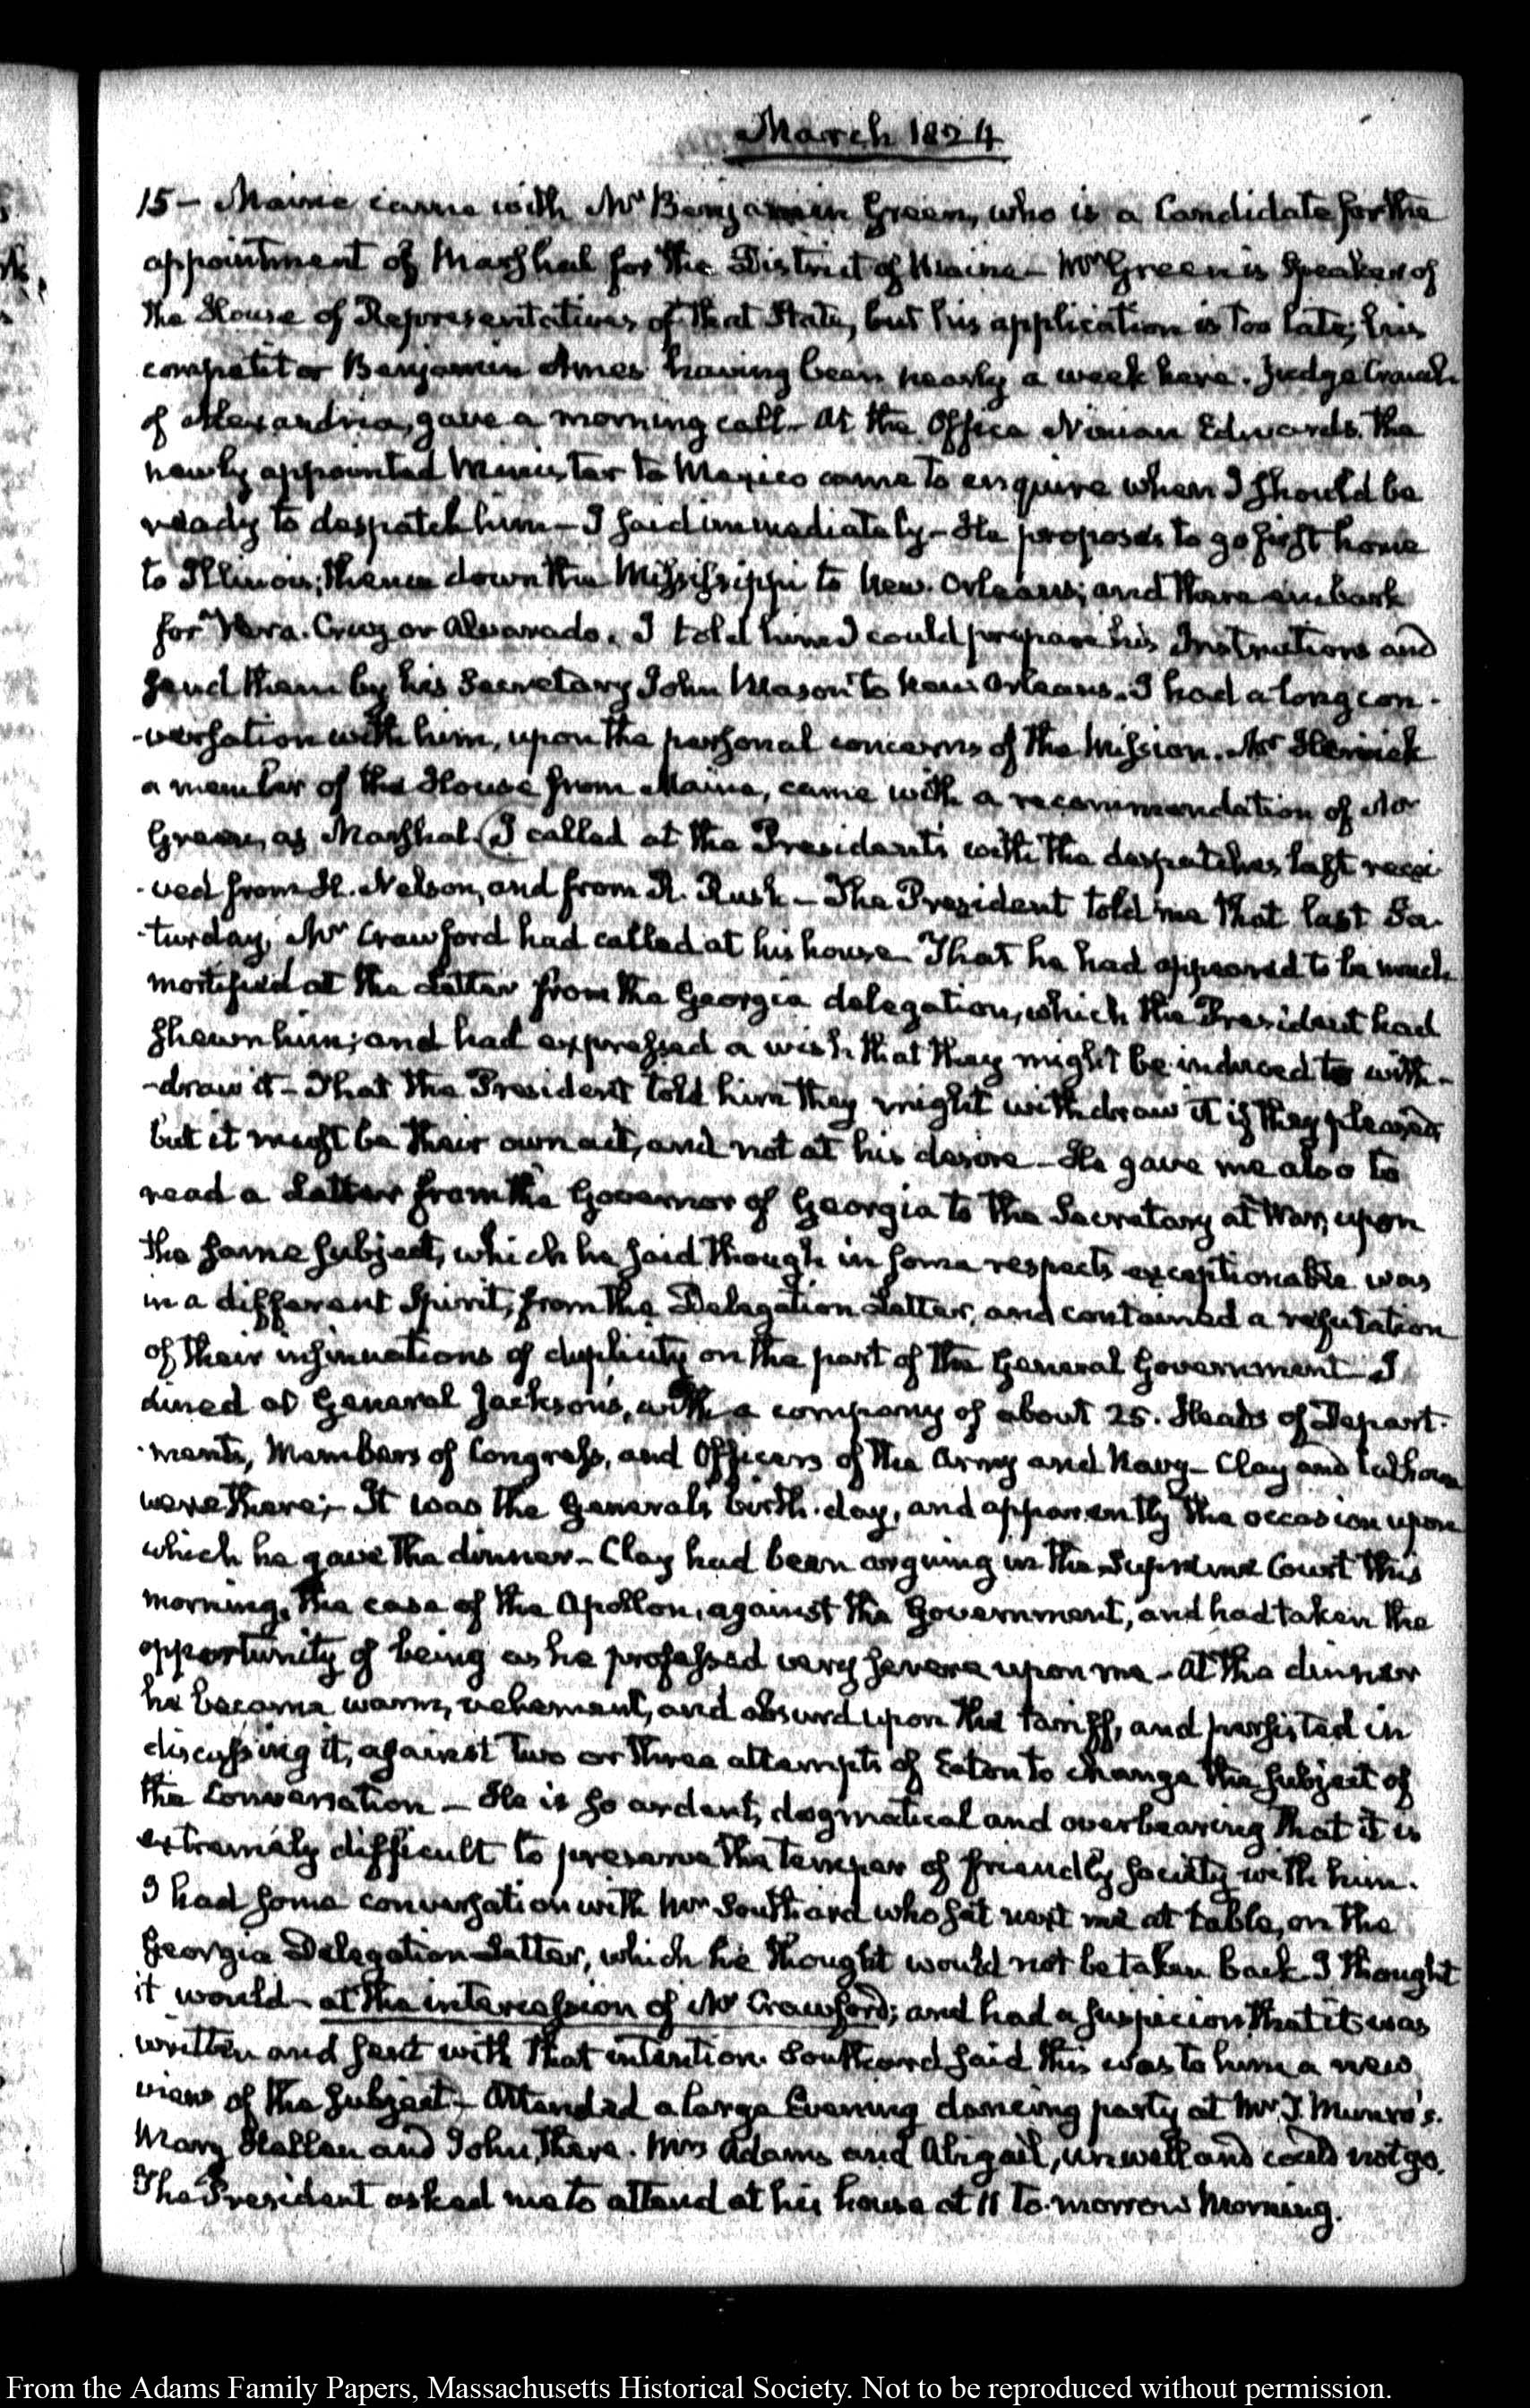 March 1824
15 – Maine came with Mr Benjamin Green, who is a Candidate for the
appointment of Marshal for the District of Maine – Mr Green is Speaker of
the House of Representatives of that State, but his application is too late; his
competitor Benjamin Ames having been nearly a week here. Judge Cranch
of Alexandria, gave a morning call – At the Office Ninian Edwards the
newly appointed Minister to Mexico came to enquire when I should be
ready to despatch him – I said immediately – He proposes to go first home
to Illinois; thence down the Mississippi to New-Orleans; and there embark
for Vera-Cruz or Alvarado. I told him I could prepare his Instructions and
send them by his Secretary John Mason to New Orleans. I had a long con-
-versation with him, upon the personal concerns of the Mission. Mr Herrick
a member of the House from Maine, came with a recommendation of Mr
Green, as Marshal. (I called at the President's with the despatches last recei-
-ved from H. Nelson, and from R. Rush – The President told me that last Sa-
-turday, Mr Crawford had called at his house That he had appeared to be much
mortified at the Letter from the Georgia delegation, which the President had
shewn him; and had expressed a wish that they might be induced to with-
-draw it – That the President told him they might withdraw it if they pleased
but it must be their own act, and not at his desire – He gave me also to
read a Letter from the Governor of Georgia to the Secretary at War, upon
the same subject, which he said though in some respects exceptionable was
in a different Spirit, from the Delegation Letter, and contained a refutation
of their insinuations of duplicity on the part of the General Government – I
dined at General Jackson's, with a company of about 25. Heads of Depart-
-ments, Members of Congress, and Officers of the Army and Navy – Clay and Calhoun
were there; – It was the Generals birth-day, and apparently the occasion upon
which he gave the dinner – Clay had been arguing in the Supreme Court this
morning, the case of the Apollon, against the Government, and had taken the
opportunity of being as he professed very severe upon me – At the dinner
he became warm, vehement, and absurd upon the tariff, and persisted in
discussing it, against two or three attempts of Eaton to change the subject of
the Conversation – He is so ardent, dogmatical and overbearing that it is
extremely difficult to preserve the temper of friendly society with him.
I had some conversation with Mr Southard who sat next me at table, on the
Georgia Delegation Letter, which he thought would not be taken back I thought
it would – at the intercession of Mr Crawford; and had a suspicion that it was
written and sent with that intention. Southard said this was to him a new
view of the subject – Attended a large Evening dancing party at Mr T. Munro's.
Mary Hellen and John, there. Mrs Adams and Abigail, unwell and could not go.
The President asked me to attend at his house at 11 to-morrow Morning.
From the Adams Family Papers, Massachusetts Historical Society. Not to be reproduced without permission.